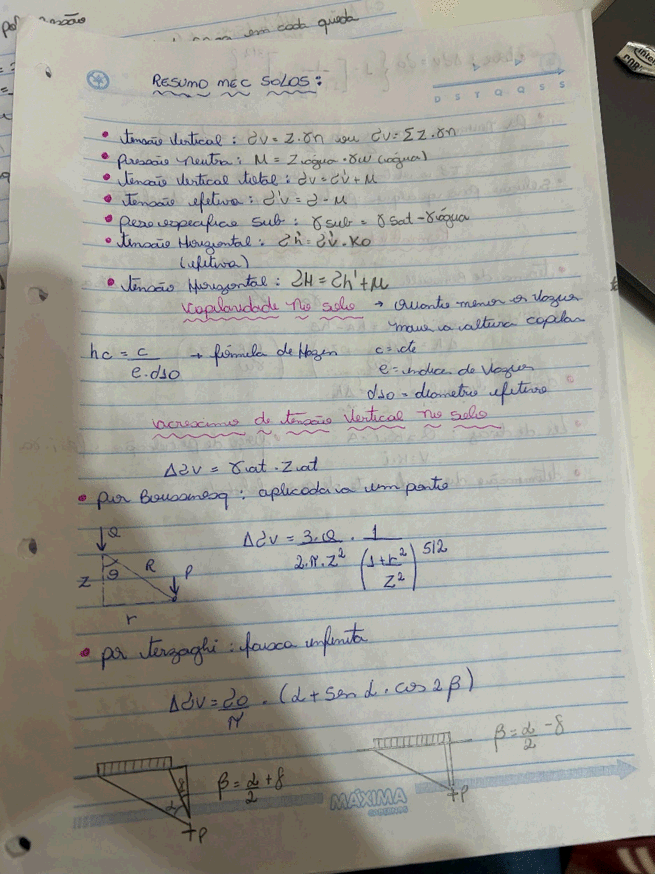 em cada queda
RESUMO MEC SOLOS:
D S T Q Q S S
• tensão Vertical : σv = z.γn ou σv = Σz.γn
• pressão neutra : μ = Zágua . γw (água)
• tensão vertical total : σv = σ'v + μ
• tensão efetiva : σ'v = σ - μ
• peso específico sub : γsub = γsat - γágua
• tensão Horizontal : σh' = σv' . Ko
(efetiva)
• tensão Horizontal : σH = σh' + μ
Capilaridade no solo → quanto menor o vazio
maior a altura capilar
hc = c / e.d10 → fórmula de Hazen
c = cte
e = índice de vazios
d10 = diametro efetivo
acrescimo de tensão Vertical no solo
Δσv = γat . Zat
• por Boussinesq : aplicada a um ponto
Δσv = 3.Q / 2.π.z² . 1 / (1+r²/z²)^5/2
Q
θ R P
z
r
• por terzaghi : faixa infinita
Δσv = σo / π . (α + sen α . cos 2β)
β = α/2 - δ
β = α/2 + δ
δ
α
+P
+P
MÁXIMA
CADERNOS